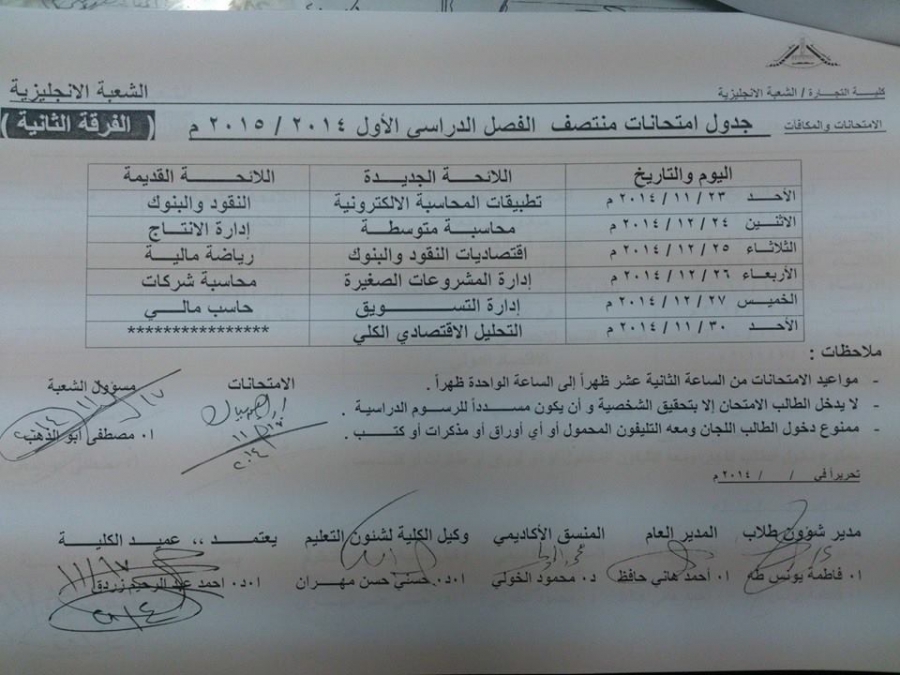 كلية التجارة / الشعبة الانجليزية
الشعبة الانجليزية
الامتحانات والمكافآت
جدول امتحانات منتصف الفصل الدراسي الأول ٢٠١٤ / ٢٠١٥ م
( الفرقة الثانية )
اليوم والتاريخ اللائحة الجديدة اللائحة القديمة
الأحد ٢٣ / ١١ / ٢٠١٤ م تطبيقات المحاسبة الالكترونية النقود والبنوك
الاثنين ٢٤ / ١٢ / ٢٠١٤ م محاسبة متوسطة إدارة الانتاج
الثلاثاء ٢٥ / ١٢ / ٢٠١٤ م اقتصاديات النقود والبنوك رياضة مالية
الأربعاء ٢٦ / ١٢ / ٢٠١٤ م إدارة المشروعات الصغيرة محاسبة شركات
الخميس ٢٧ / ١٢ / ٢٠١٤ م إدارة التسويق حاسب مالي
الأحد ٣٠ / ١١ / ٢٠١٤ م التحليل الاقتصادي الكلي ****************
ملاحظات :
- مواعيد الامتحانات من الساعة الثانية عشر ظهراً إلى الساعة الواحدة ظهراً .
- لا يدخل الطالب الامتحان إلا بتحقيق الشخصية و أن يكون مسدداً للرسوم الدراسية .
- ممنوع دخول الطالب اللجان ومعه التليفون المحمول أو أي أوراق أو مذكرات أو كتب .
الامتحانات
مسؤول الشعبة
أ. مصطفى أبو الذهب
تحريراً في / / ٢٠١٤ م
مدير شؤون طلاب المدير العام المنسق الأكاديمي وكيل الكلية لشئون التعليم يعتمد ،، عميد الكلية
أ. فاطمة يونس طه أ. أحمد هاني حافظ د. محمود الخولي ا.د. حسني حسن مهران ا.د. احمد عبد الرحيم زردق